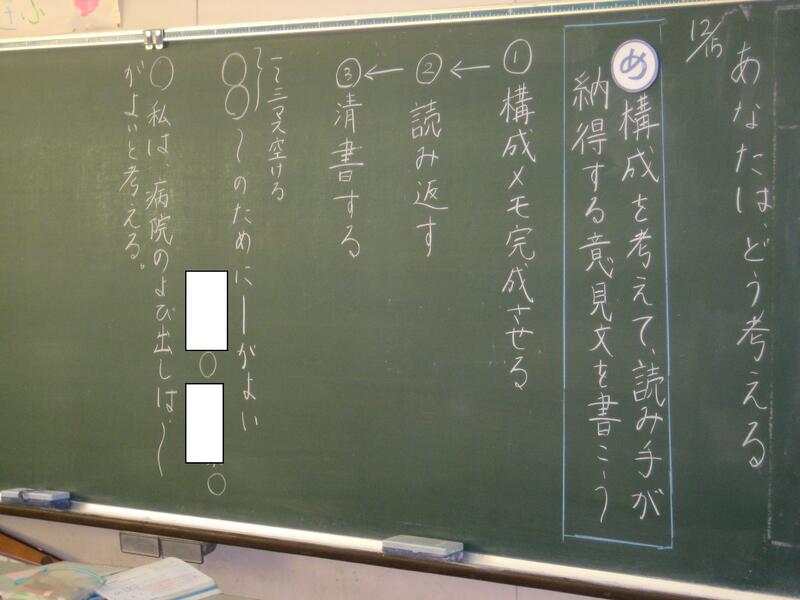 12/15
あなたは、どう考える
め 構成を考えて、読み手が
納得する意見文を書こう
①構成メモ完成させる
②読み返す
③清書する
一〜三マス空ける
○○〜のために―がよい
○
○
○私は、病院のよび出しは、〜
がよいと考える。